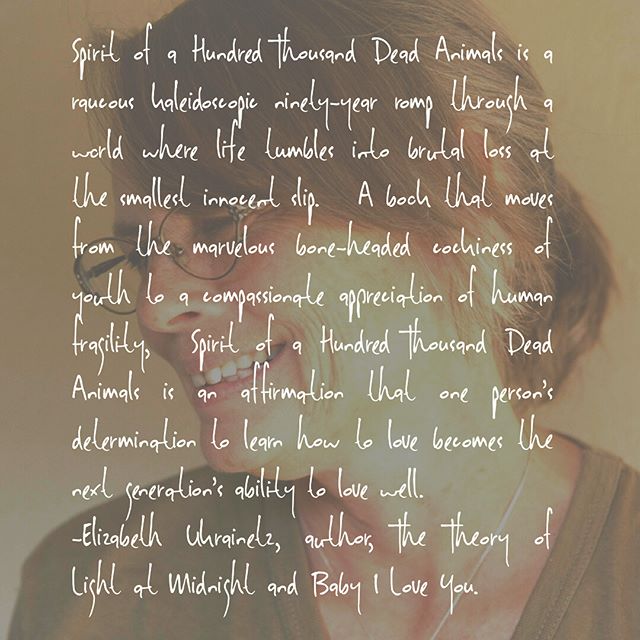 Spirit of a Hundred Thousand Dead Animals is a
raucous kaleidoscopic ninety-year romp through a
world where life tumbles into brutal loss at
the smallest innocent slip. A book that moves
from the marvelous bone-headed cockiness of
youth to a compassionate appreciation of human
fragility, Spirit of a Hundred Thousand Dead
Animals is an affirmation that one person's
determination to learn how to love becomes the
next generation's ability to love well.
-Elizabeth Ukrainetz, author, the theory of
Light at Midnight and Baby I Love You.